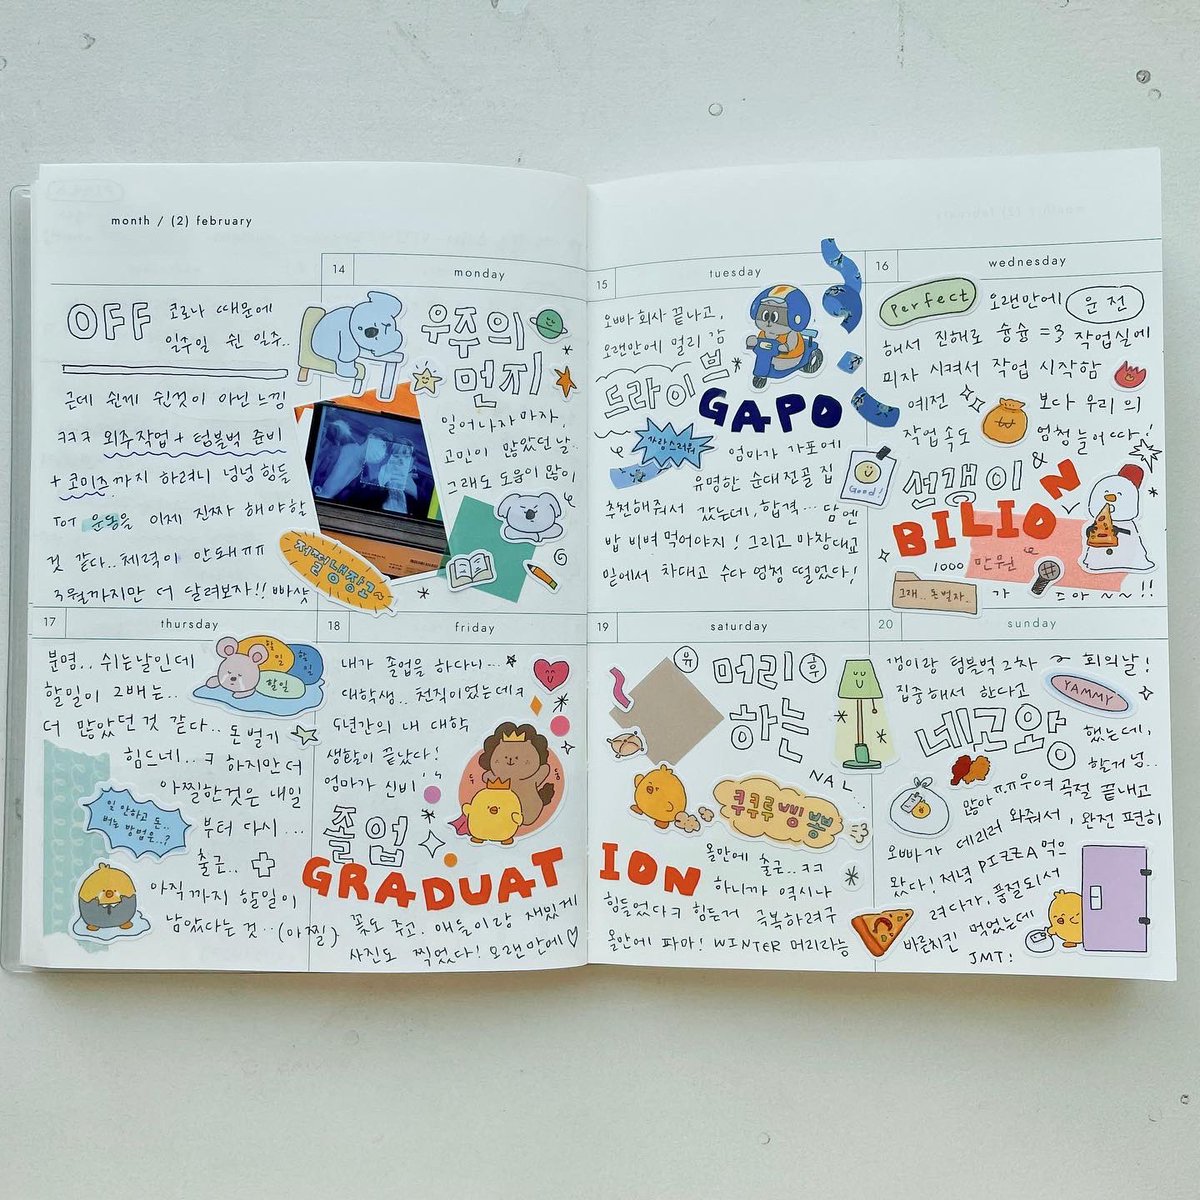 month / (2) february
OFF
코로나 때문에
일주일 쉰 일주..
근데 쉰게 쉰것이 아닌 느낌
ㅋㅋㅋ 외주작업 + 텀블벅 준비
+ 코미즈까지 하려니 넘넘 힘듦
운동을 이제 진짜 해야할
것 같다.. 체력이 안돼ㅠㅠ
3월까지만 더 달려보자!! 빠샷
14 monday
우주의
먼지
일어나자마자,
고민이 많았던 날..
그래도 도움이 많이
저쩔냉장고~
15 tuesday
오빠 회사 끝나고,
오랜만에 멀리 감
드라이브
GAPO
사랑스러워
엄마가 가포에
유명한 순대전골 집
추천해줘서 갔는데, 합격... 담엔
밥 비벼 먹어야지! 그리고 마창대교
밑에서 차대고 수다 엄청 떨었다!
16 wednesday
Perfect
오랜만에 운전
해서 진해로 슝슝=3 작업실에
피자 시켜서 작업 시작함
예전 보다 우리의
작업속도 엄청 늘어따!
Good!
선갱이 &
BILION
1000 만원
그래.. 돈벌자..
가 즈아~~!!
17 thursday
분명.. 쉬는날인데
할일이 2배는..
더 많았던 것 같다.. 돈 벌기
힘드네..ㅋ 하지만 더
아찔한것은 내일
부터 다시...
출근..
아직까지 할일이
남았다는 것.. (아찔)
할일
할일
할일
일 안하고 돈..
버는 방법은..?
18 friday
내가 졸업을 하다니...
대학생.. 천직이었는데ㅋ
5년간의 내 대학
생활이 끝났다!
엄마가 신비
두둠
졸업
GRADUAT
꽃도 주고. 애들이랑 재밌게
사진도 찍었다! 오랜만에♡
19 saturday
머리
하는
NAL..
쿠쿠루삥뽕
ION
올만에 출근..ㅋㅋ
하니까 역시나
힘들었다ㅋ 힘든거 극복하려구
올만에 파마! WINTER 머리라능
20 sunday
갱이랑 텀블벅 2차 회의날!
집중해서 한다고
YAMMY
네고왕
했는데,
할거 넘..
많아 ㅠㅠ 우여곡절 끝내고
오빠가 데리러 와줘서, 완전 편히
왔다! 저녁 PIZZA 먹으
려다가, 품절되서
바른치킨 먹었는데
JMT!